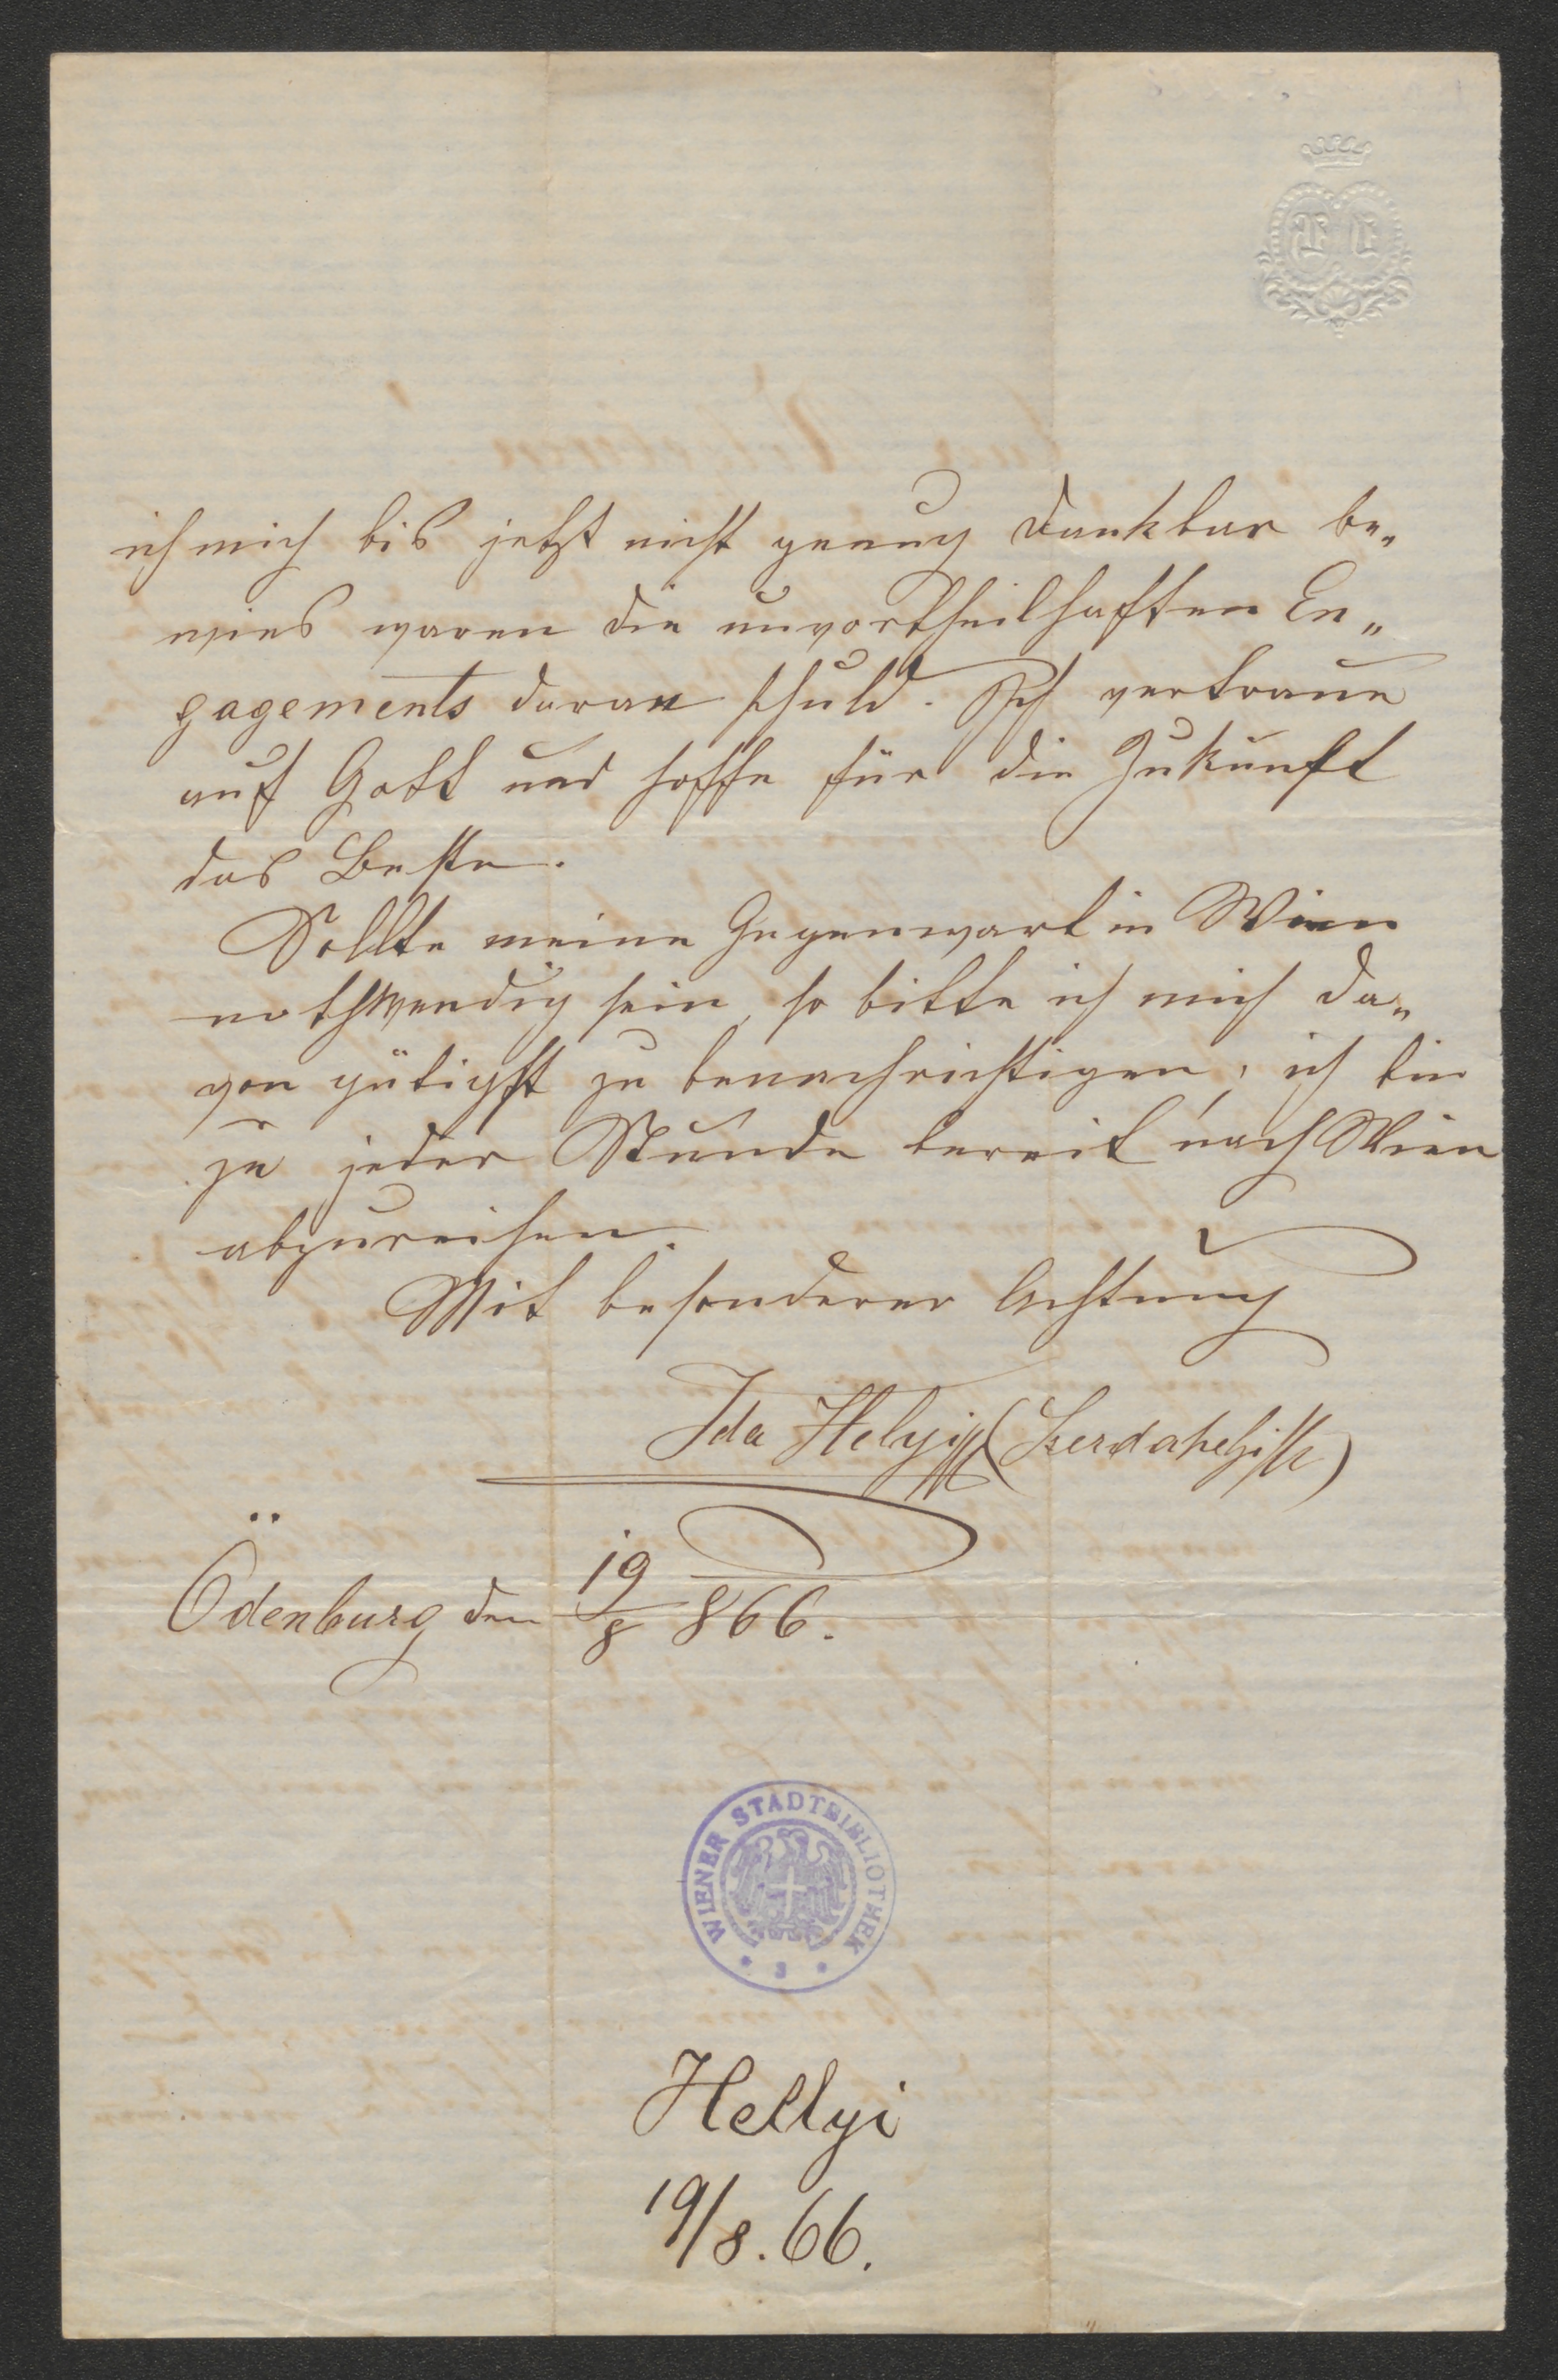 ich mich bis jetzt nicht genug dankbar be„
wies waren die unvortheilhaften En„
gagements daran schuld. Ich vertraue
auf Gott und hoffe für die Zukunft
das Beste.
Sollte meine Gegenwart in Wien
nothwendig sein, so bitte ich mich da„
von gütigst zu benachrichtigen, ich bin
zu jeder Stunde bereit nach Wien
abzureisen.
Mit besonderer Achtung
Ida Helyi (Szerdahelyi)
Ödenburg den 19/8 866.
WIENER STADTBIBLIOTHEK
Hellyi
19/8. 66.